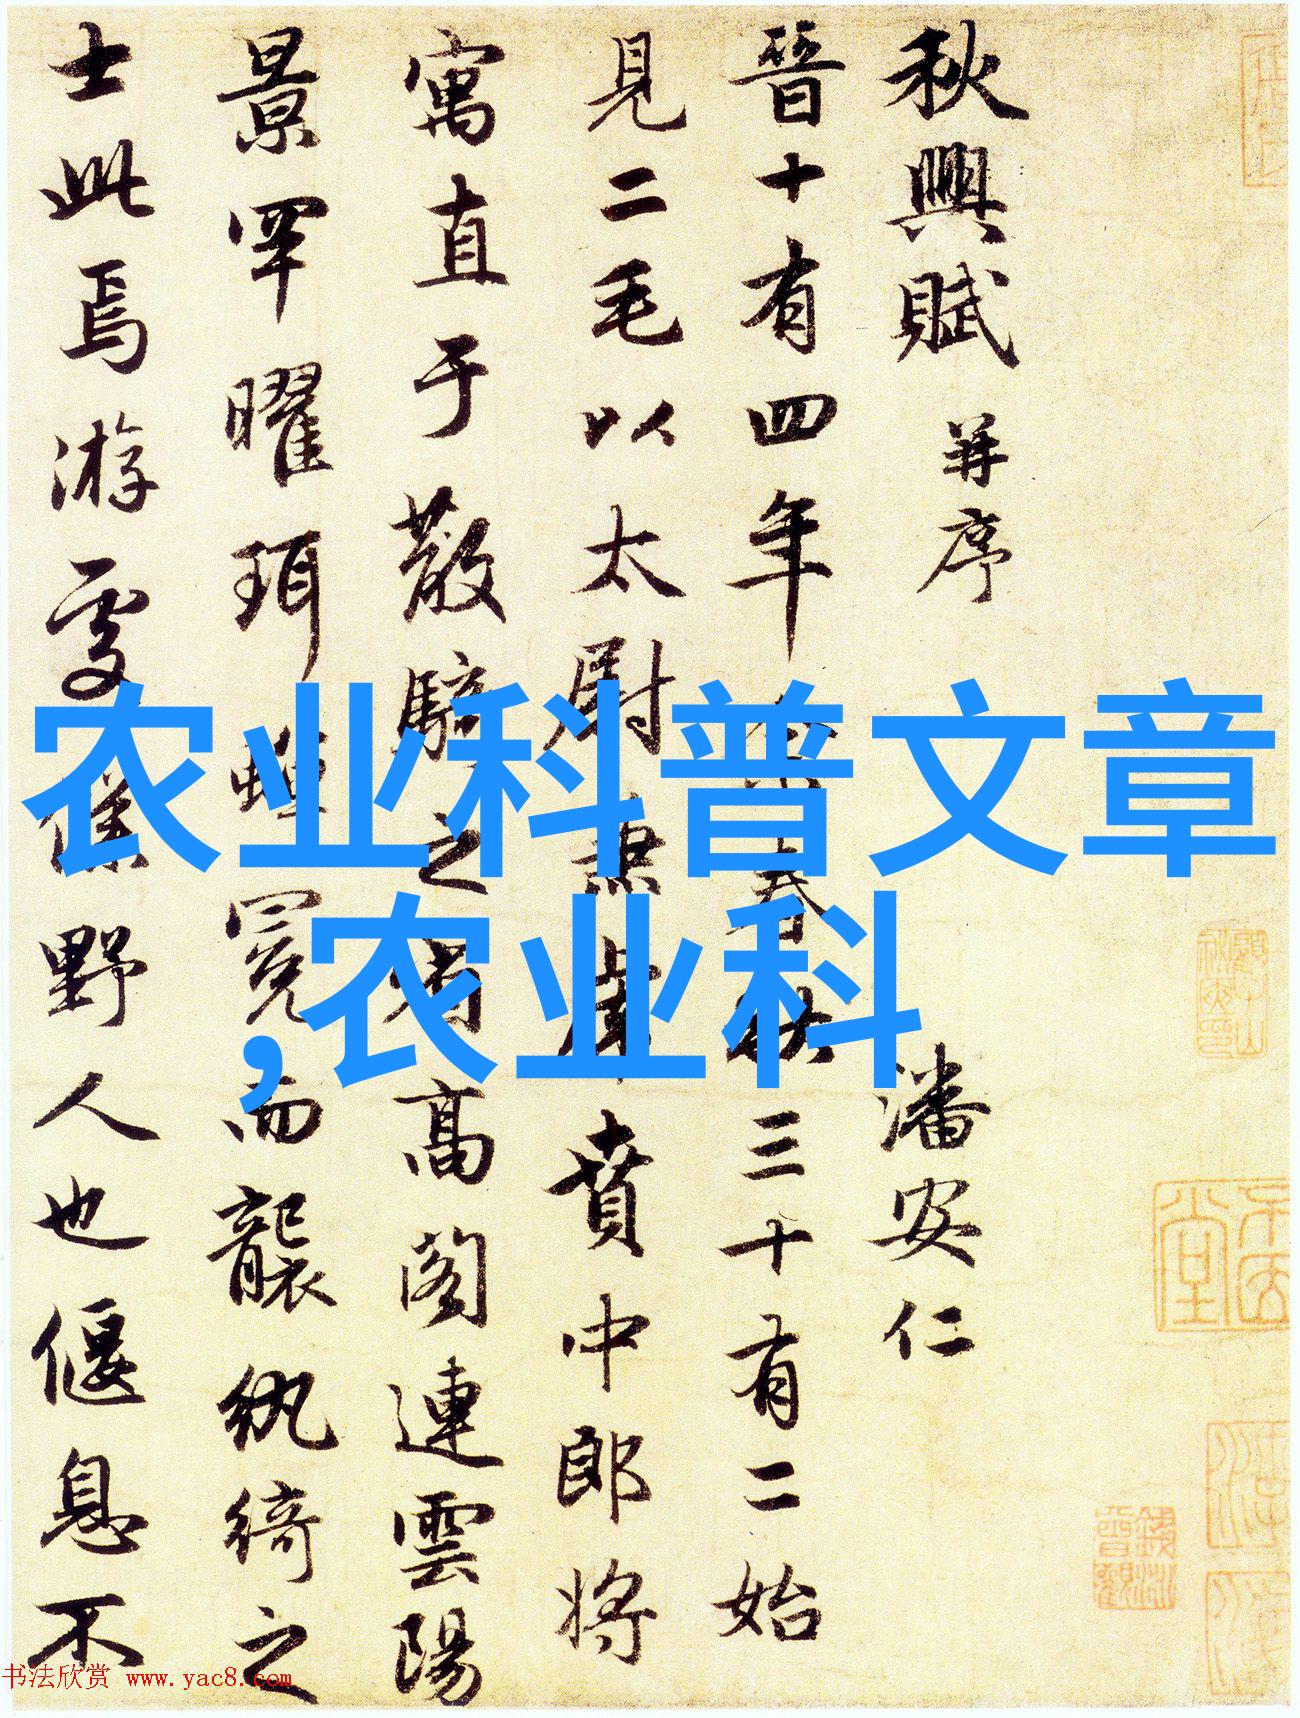 秋興賦 并序
潘安仁
晉十有四年余春秋三十有二始
見二毛以太尉掾兼虎賁中郎將
寓直于散騎之省高閣連雲陽
景罕曜珥蟬冕而襲紈綺之
士此焉游處僕野人也偃息不
农业科普文章
,农业科
书法欣赏 www.yac8.com